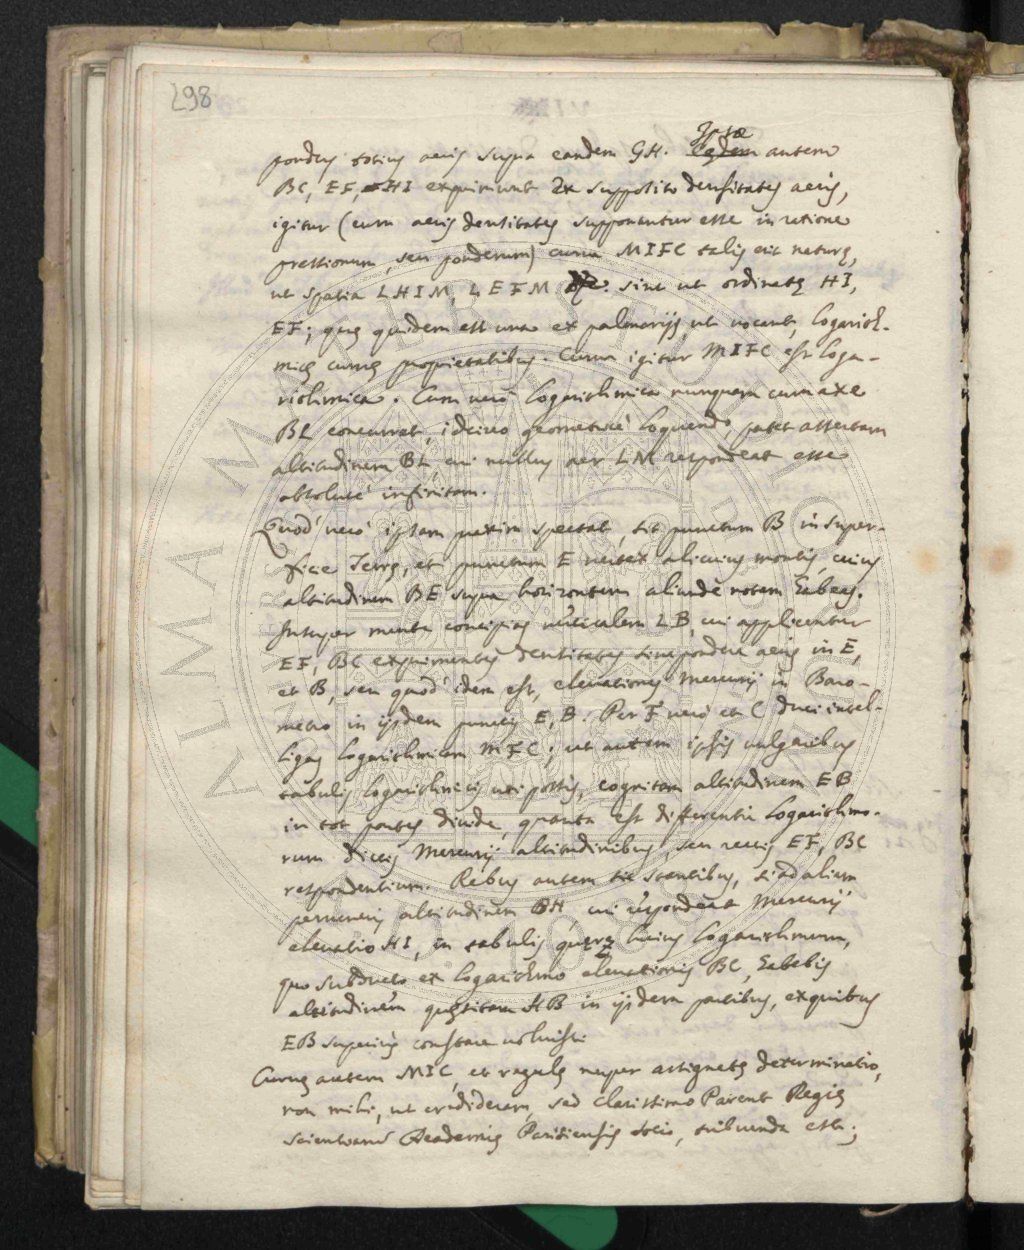 298
pondus totius aeris supra eandem GH. Ipsae eadem autem
BC, EF, HI exprimunt Ex supposito densitates aeris,
igitur (cum aeris densitates supponantur esse in ratione
pressionum, seu ponderum) curva MIFC talis erit naturę,
ut spatia LHIM, LEFM &c. sint ut ordinatę HI,
EF; quę quidem est una ex palmarijs, ut vocant, Logarith-
micę curvę proprietatibus. Curva igitur MIFC est Loga-
rithmica. Cum verò Logarithmica nunquam cum axe
BL concurrat, idcirco geometricè loquendo, patet assertam
altitudinem BL, cui nullus aer LM respondeat esse
absolutè infinitam.
Quod verò ipsam praxim spectat, sit punctum B in super-
ficie Terrę, et punctum E vertex alicuius montis, cuius
altitudinem BE supra horizontem aliundè notam habeas.
Insuper mente concipias verticalem LB, cui applicentur
EF, BC exprimentes densitates sive pondera aeris in E,
et B, seu quod idem est, elevationes Mercurij in Baro-
metro in ijsdem punctis E, B. Per F verò et C duci intel-
ligas Logarithmicam MFC; ut autem ipsis vulgaribus
tabulis Logarithmicis uti possis, cognitam altitudinem EB
in tot partes divide, quanta est differentia Logarithmo-
rum dictis Mercurij altitudinibus, seu rectis EF, BC
respondentium. Rebus autem sic stantibus, si ad aliam
perveneris altitudinem BH cui respondeat Mercurij
elevatio HI, in tabulis quęre huius Logarithmum,
quo subducto ex Logarithmo elevationis BC, habebis
altitudinem quęsitam HB in ijsdem partibus, ex quibus
EB superius constare voluisti.
Curvę autem MIC, et regulę nuper assignatę determinatio,
non mihi, ut credideram, sed Clarissimo Parent Regię
Scientiarum Academię Parisiensis socio, tribuenda est;